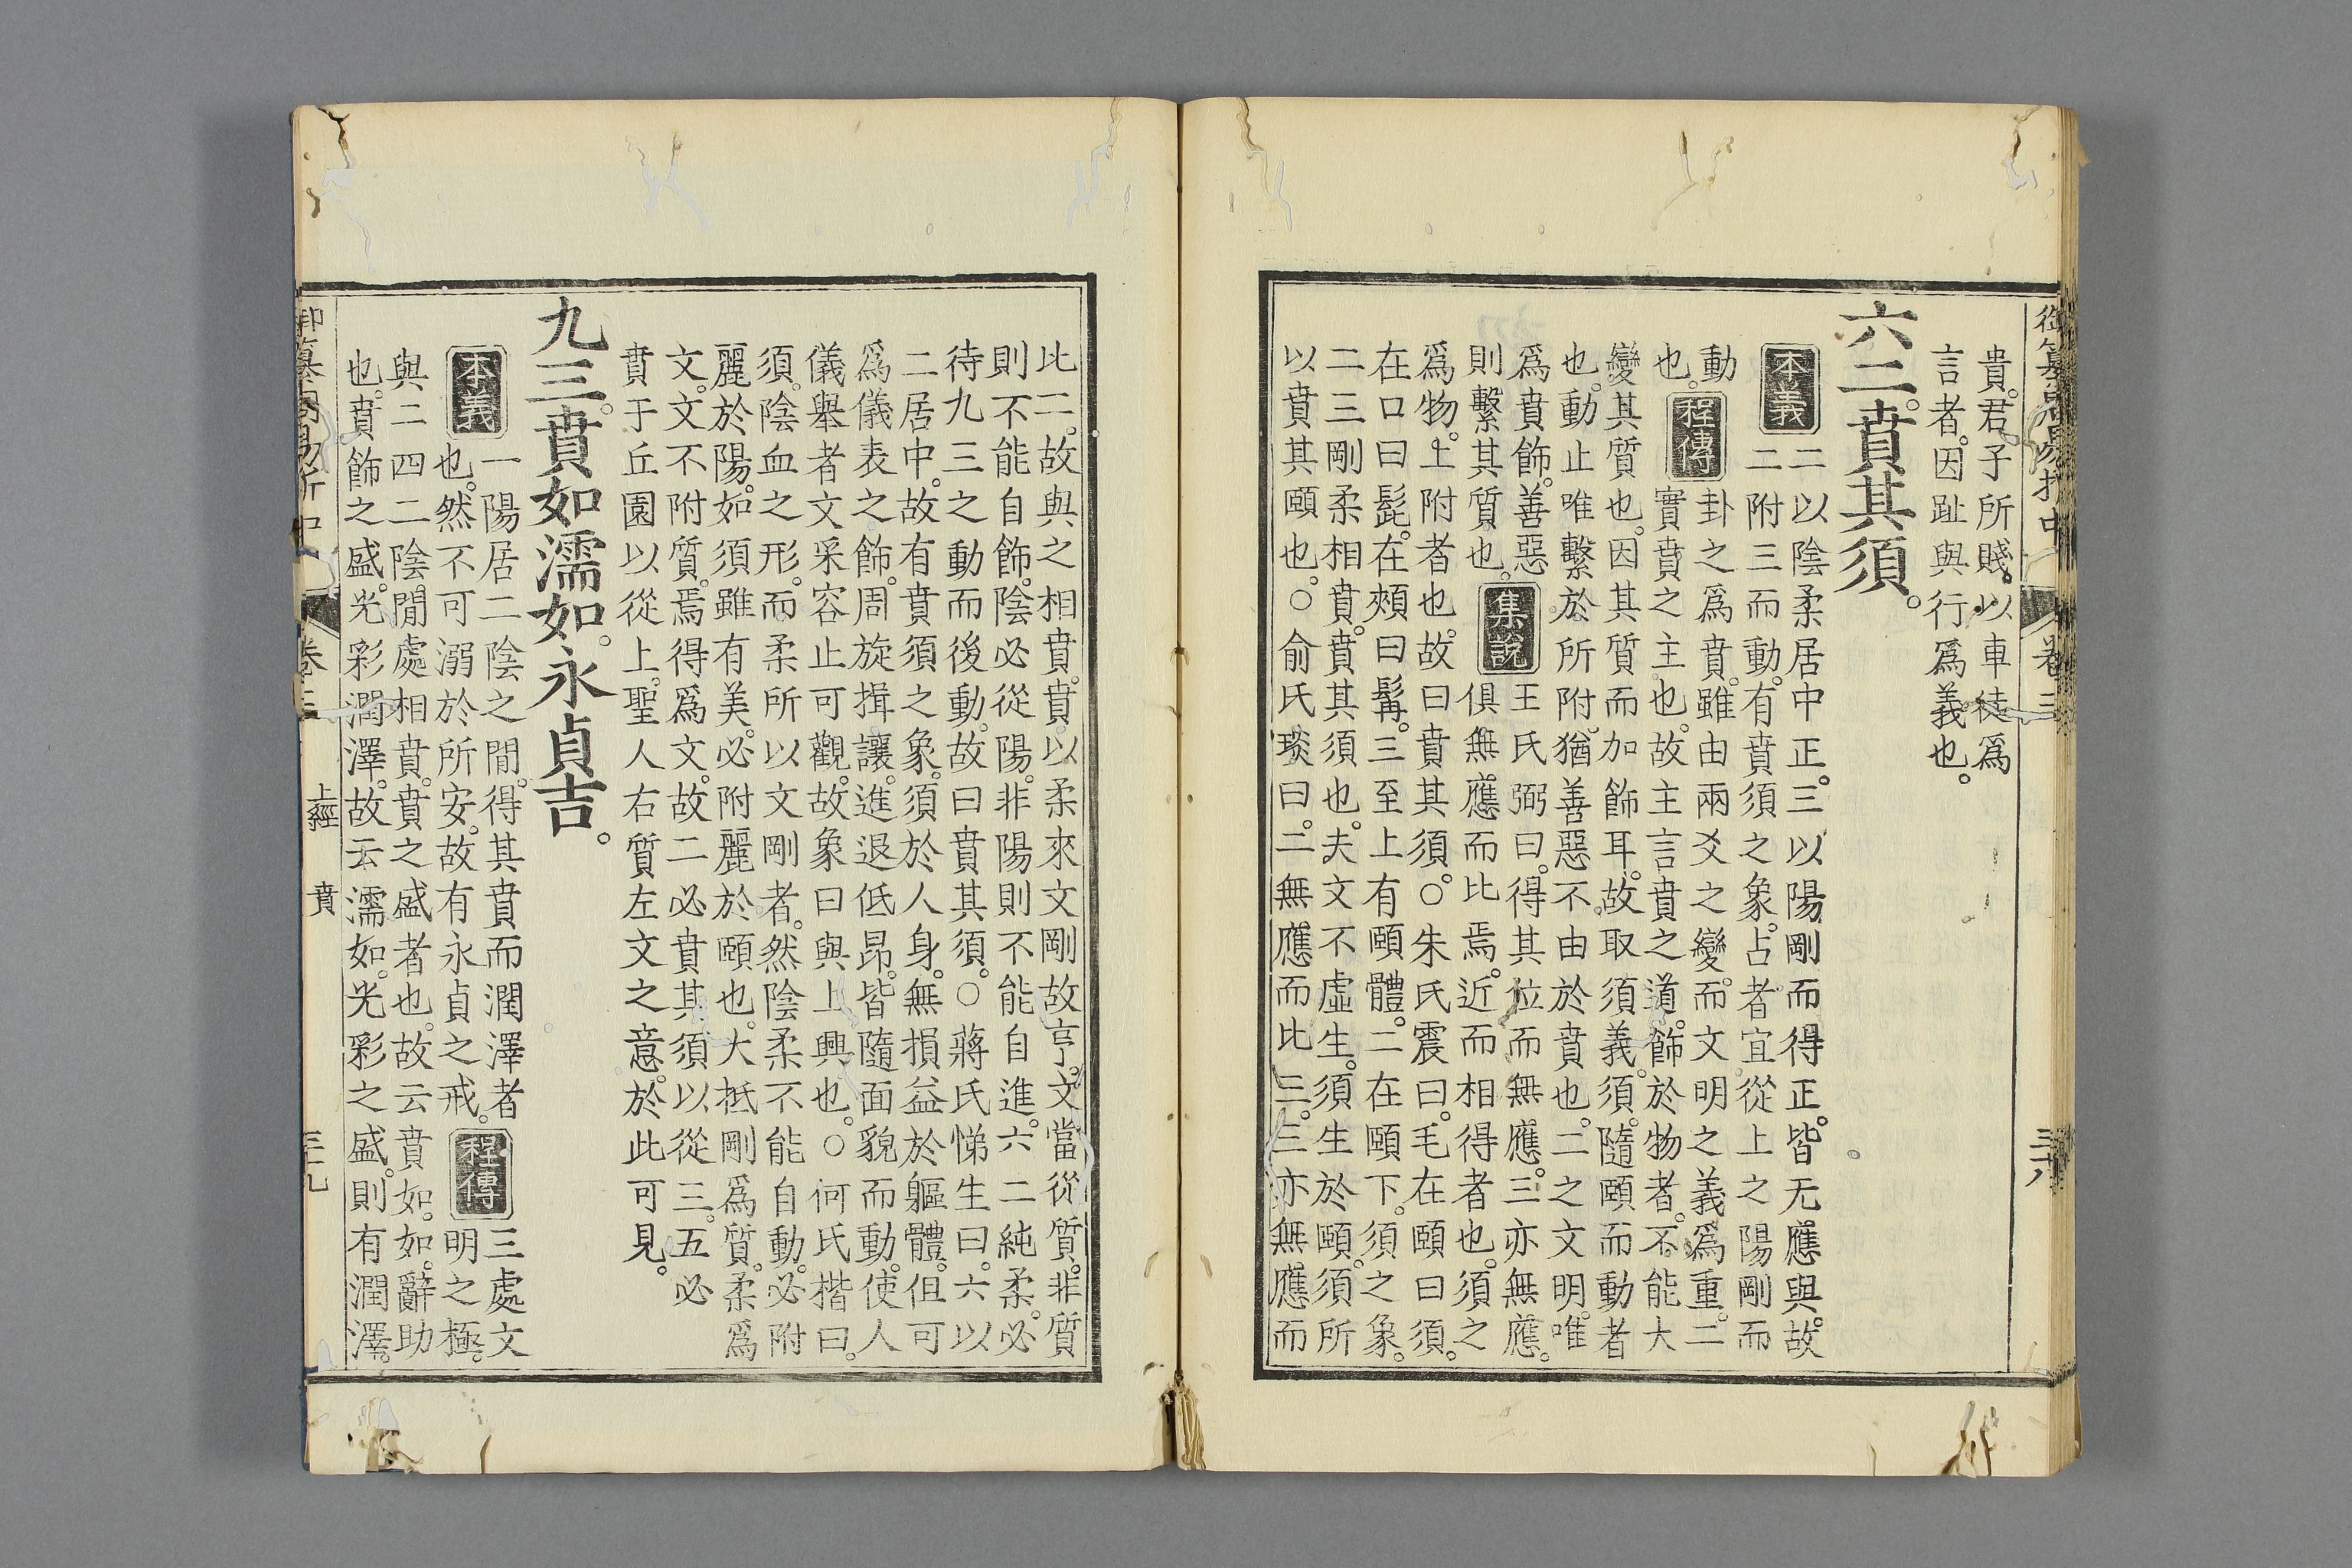 御纂周易折中 卷三 三十八
貴。君子所賤。以車徒爲
言者。因趾與行爲義也。
六二。賁其須。
本義 二以陰柔居中正。三以陽剛而得正。皆无應與。故
二附三而動。有賁須之象。占者宜從上之陽剛而
動也。
程傳 卦之爲賁。雖由兩爻之變。而文明之義爲重。二
實賁之主也。故主言賁之道。飾於物者。不能大
變其質也。因其質而加飾耳。故取須義。須隨頤而動者
也。動止唯繫於所附。猶善惡不由於賁也。二之文明。唯
爲賁飾。善惡
則繫其質也。
集說 王氏弼曰。得其位而無應。三亦無應。
俱無應而比焉。近而相得者也。須之
爲物。上附者也。故曰賁其須。○朱氏震曰。毛在頤曰須。
在口曰髭。在頰曰髯。三至上有頤體。二在頤下。須之象。
二三剛柔相賁。賁其須也。夫文不虛生。須生於頤。須所
以賁其頤也。○俞氏琰曰。二無應而比三。三亦無應而
比二。故與之相賁。賁以柔來文剛故亨。文當從質。非質
則不能自飾。陰必從陽。非陽則不能自進。六二純柔。必
待九三之動而後動。故曰賁其須。○蔣氏悌生曰。六以
二居中。故有賁須之象。須於人身。無損益於軀體。但可
爲儀表之飾。周旋揖讓。進退低昂。皆隨面貌而動。使人
儀舉者文采容止可觀。故象曰與上興也。○何氏楷曰。
須。陰血之形。而柔所以文剛者。然陰柔不能自動。必附
麗於陽。如須雖有美。必附麗於頤也。大抵剛爲質。柔爲
文。文不附質。焉得爲文。故二必賁其須以從三。五必
賁于丘園以從上。聖人右質左文之意。於此可見。
九三。賁如濡如。永貞吉。
本義 一陽居二陰之閒。得其賁而潤澤者
也。然不可溺於所安。故有永貞之戒。
程傳 三處文
明之極。
與二四二陰閒處相賁。賁之盛者也。故云賁如。如。辭助
也。賁飾之盛。光彩潤澤。故云濡如。光彩之盛。則有潤澤。
御纂周易折中 卷三 上經 賁 三十九